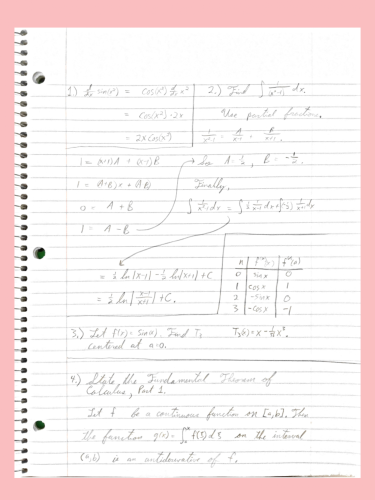 1) d/dx sin(x²) = cos(x²) d/dx x²
= cos(x²)·2x
= 2x cos(x²)
2.) Find ∫ 1/(x²-1) dx.
Use partial fractions.
1/(x²-1) = A/(x-1) + B/(x+1)
1 = (x+1)A + (x-1)B
1 = (A+B)x + (A-B)
0 = A + B
1 = A - B
So A = 1/2, B = -1/2.
Finally,
∫ 1/(x²-1) dx = ∫ 1/2 1/(x-1) dx + ∫(-1/2) 1/(x+1) dx
= 1/2 ln|x-1| - 1/2 ln|x+1| + C
= 1/2 ln|(x-1)/(x+1)| + C.
3.) Let f(x) = sin(x). Find T₃
centered at a=0.
n f⁽ⁿ⁾(x) f⁽ⁿ⁾(0)
0 sin x 0
1 cos x 1
2 -sin x 0
3 -cos x -1
4.) State the Fundamental Theorem of
Calculus, Part 1.
Let f be a continuous function on [a,b]. Then
the function g(x) = f(s) ds on the interval
(a,b) is an antiderivative of f.